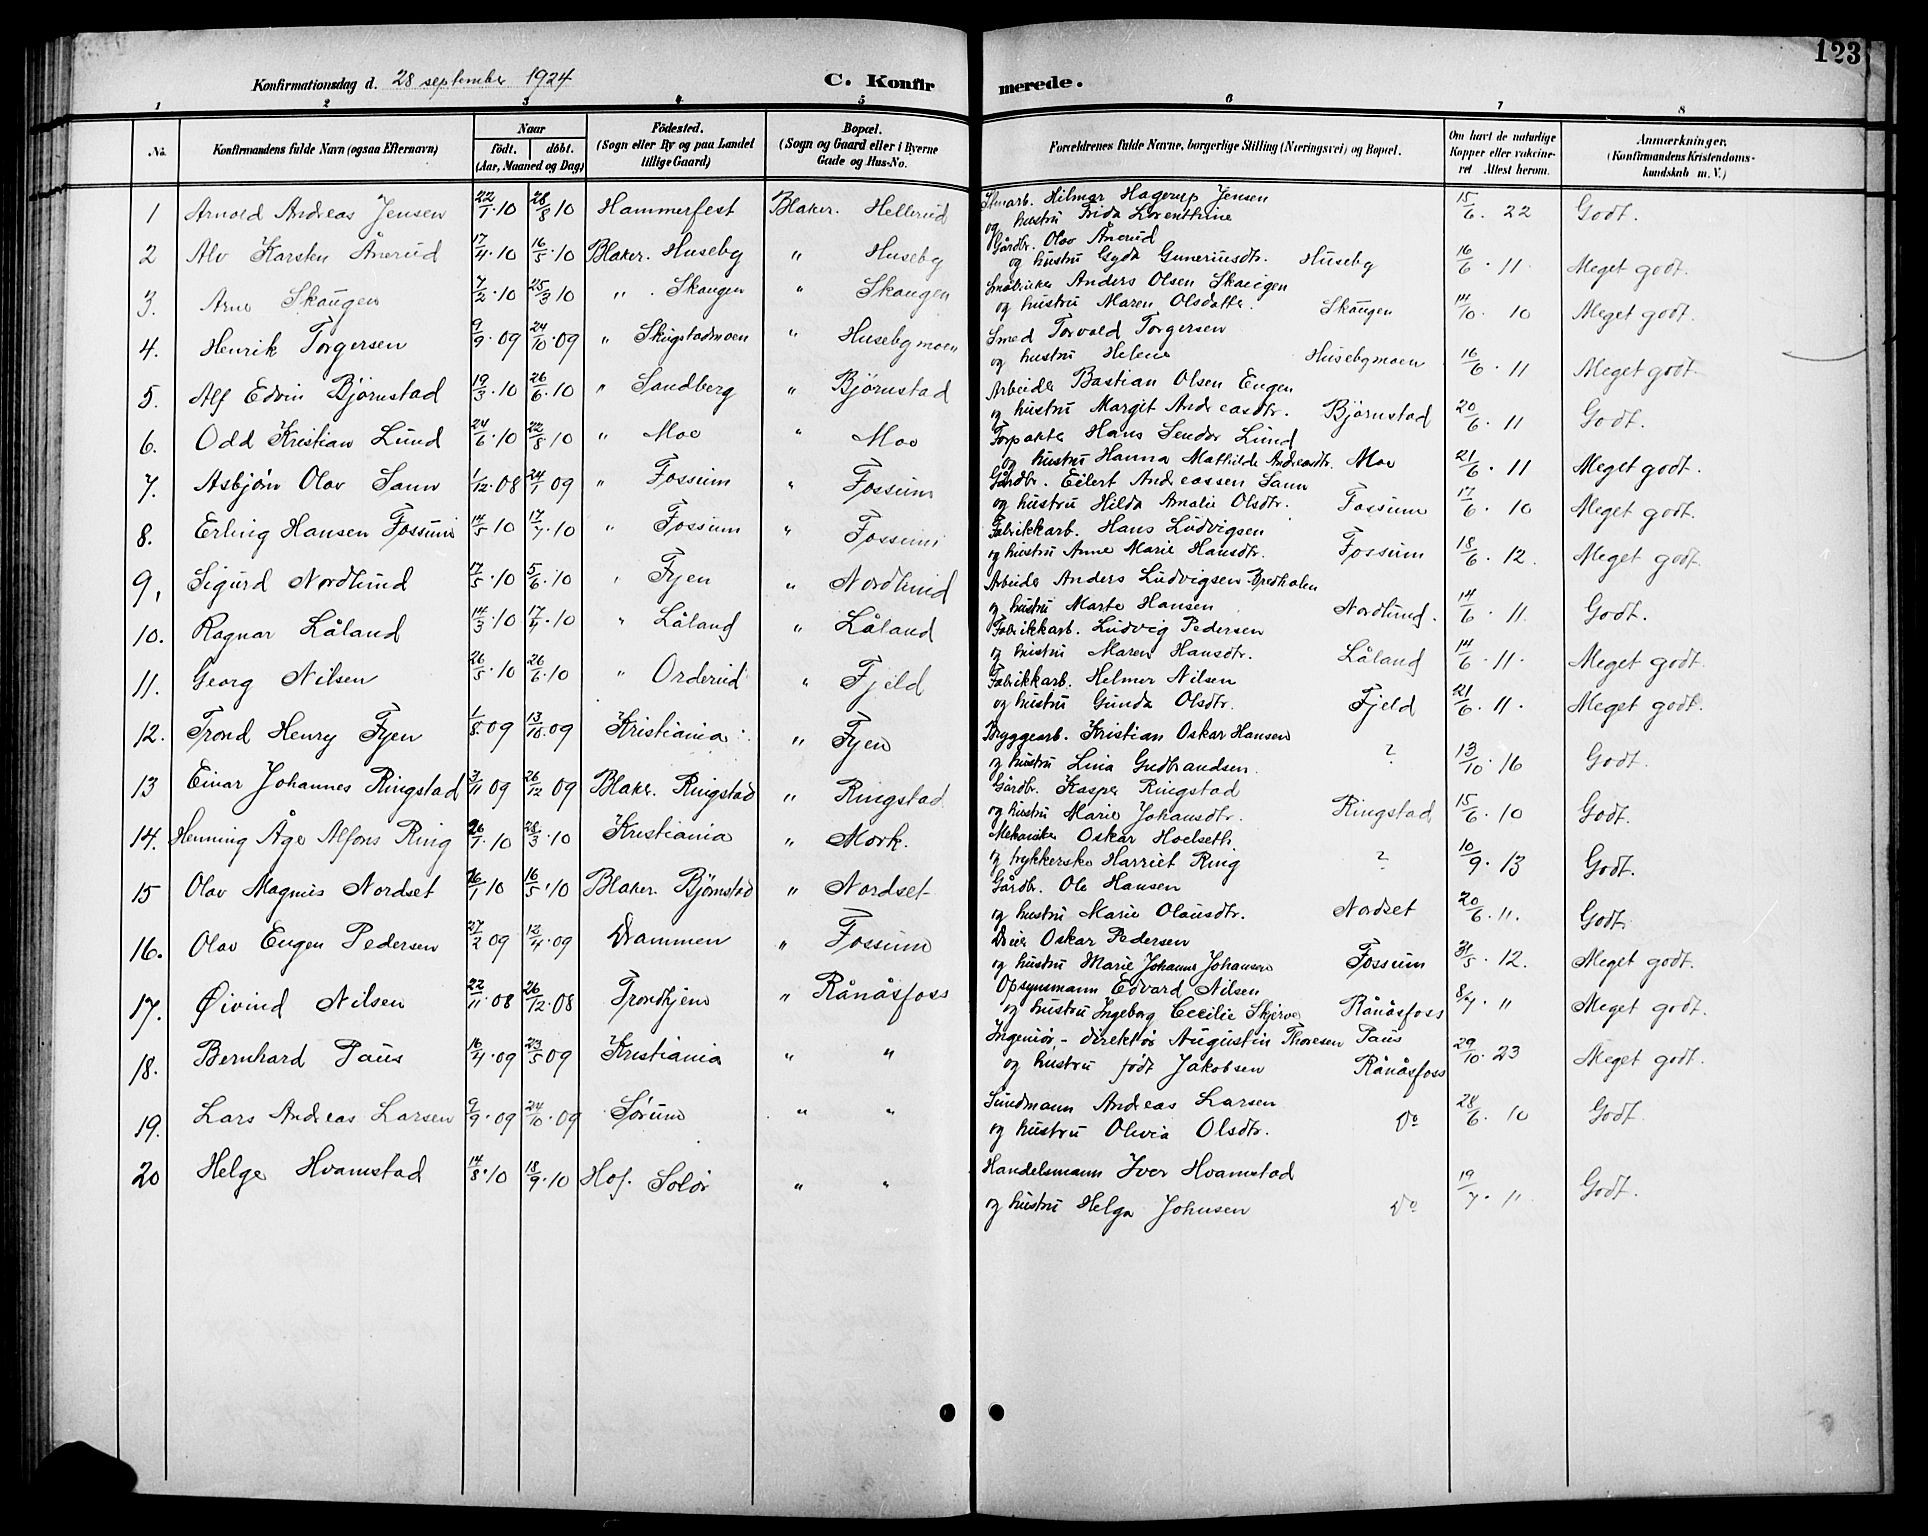 123
Konfirmationsdag d. 28 september 1924 C. Konfirmerede.
1 2 3 4 5 6 7 8
No. Konfirmandens fulde Navn (ogsaa Efternavn) Naar födt. döbt. (Aar, Maaned og Dag) Födested. (Sogn eller By og paa Landet tillige Gaard) Bopæl. (Sogn og Gaard eller i Byerne Gade og Hus-No. Forældrenes fulde Navne, borgerlige Stilling (Næringsvei) og Bopæl. Om havt de naturlige Kopper eller vakcineret Attest herom. Anmærkninger. (Konfirmandens Kristendomskundskab m. V.)
1 Arnold Andreas Jensen 22/1 10 28/8 10 Hammerfest Blaker. Hellerud Hilmar Hagerup Jensen 15/6. 22 Godt.
og hustru Frida Lorenthine
2 Alv Karsten Ånerud 17/4.10 16/5.10 Blaker. Huseby " Huseby Gårdbr. Olav Ånerud
og hustru Gyda Guneriusdtr. Huseby 16/6. 11. Meget godt.
3. Arne Skaugen 7/2.10 25/3 10 " Skaugen " Skaugen Småbruker Anders Olsen Skaugen
og hustru Maren Olsdatter. Skaugen 14/10. 10 Meget godt.
4. Henrik Torgersen 9/9.09 24/10.09 " Skugstadmoen " Husebymoen Smed Torvald Torgersen
og hustru Helene Husebymoen 16/6. 11 Meget godt.
5. Alf Edvin Björnstad 19/3.10 26/6.10 " Sandberg " Björnstad Arbeider Bastian Olsen Eugen
og hustru Margit Andreasdtr. Björnstad 20/6. 11 Godt.
6. Odd Kristian Lund 24/6.10 22/8 10 " Moe " Moe Forpakter Hans Sendor Lund
og hustru Hanna Mathilde Andreasdtr. Moe 21/6. 11 Meget godt.
7. Asbjörn Olav Sann 1/12.08 24/1 09 " Fossum " Fossum Gårdbr. Eilert Andreassen Sann
og hustru Hilda Amalie Olsdtr. Fossum 17/6. 10 Meget godt.
8. Erling Hansen Fossum 14/5.10 17/7.10 " Fossum " Fossum Fabrikkarb. Hans Ludvigsen
og hustru Anne Marie Hansdtr. Fossum 18/6. 12. Meget godt.
9. Sigurd Nordlund 17/5.10 5/6.10 " Fyen " Nordlund Arbeider Anders Ludvigsen Bredholen
og hustru Marte Hansen Nordlund. 14/6. 11. Godt.
10. Ragnar Låland 14/3.10 17/4.10 " Låland " Låland Fabrikkarb. Ludvig Pedersen
og hustru Maren Hansdtr. Låland 14/6. 11. Meget godt.
11. Georg Nilsen 26/5.10 26/6.10 " Orderud " Fjeld Fabrikkarb. Helmer Nilsen
og hustru Gunda Olsdtr. Fjeld 21/6. 11. Meget godt.
12. Trond Henry Fyen 1/8.09 13/10.09 Kristiania " Fyen Bryggearb. Kristian Oskar Hansen
og hustru Lina Gudbrandsen. ? 13/10. 16 Godt.
13 Einar Johannes Ringstad 3/11 09 26/12 09 Blaker. Ringstad " Ringstad Gårdbr. Kasper Ringstad
og hustru Marie Johansdtr. Ringstad 15/6. 10 Godt.
14. Henning Åge Alfons Ring 26/1.10 28/3.10 Kristiania " Mork. Mekaniker Oskar Hoelseth
og trykkerske Harriet Ring ? 10/9. 13 Godt.
15 Olav Magnus Nordset 16/1 10 16/5.10 Blaker. Björnstad " Nordset Gårdbr. Ole Hansen
og hustru Marie Olausdtr. Nordset 20/6. 11. Godt.
16. Olav Eugen Pedersen 27/2 09 12/4.09 Drammen " Fossum Oskar Pedersen
og hustru Marie Johanne Johansen Fossum 31/5. 12. Meget godt.
17. Øivind Nilsen 22/11.08 26/12.08 Trondhjem " Rånåsfoss Opsynsmann Edvard Nilsen
og hustru Ingeborg Cecilie Skjerve Rånåsfoss 8/7. " Meget godt.
18. Bernhard Paus 16/4.09 23/5 09 Kristiania " " Ingeniör - direktör Augustin Thoresen Paus
og hustru födt Jakobsen Rånåsfoss 29/10. 23 Meget godt.
19. Lars Andreas Larsen 9/9.09 24/10.09 Sörum " " Sundmann Andreas Larsen
og hustru Olivia Olsdtr. Do 28/6. 10 Godt
20 Helge Hvamstad 14/8.10 18/9.10 Hof. Solör " " Handelsmann Iver Hvamstad
og hustru Helga Johnsen Do 19/7. 11. Godt.